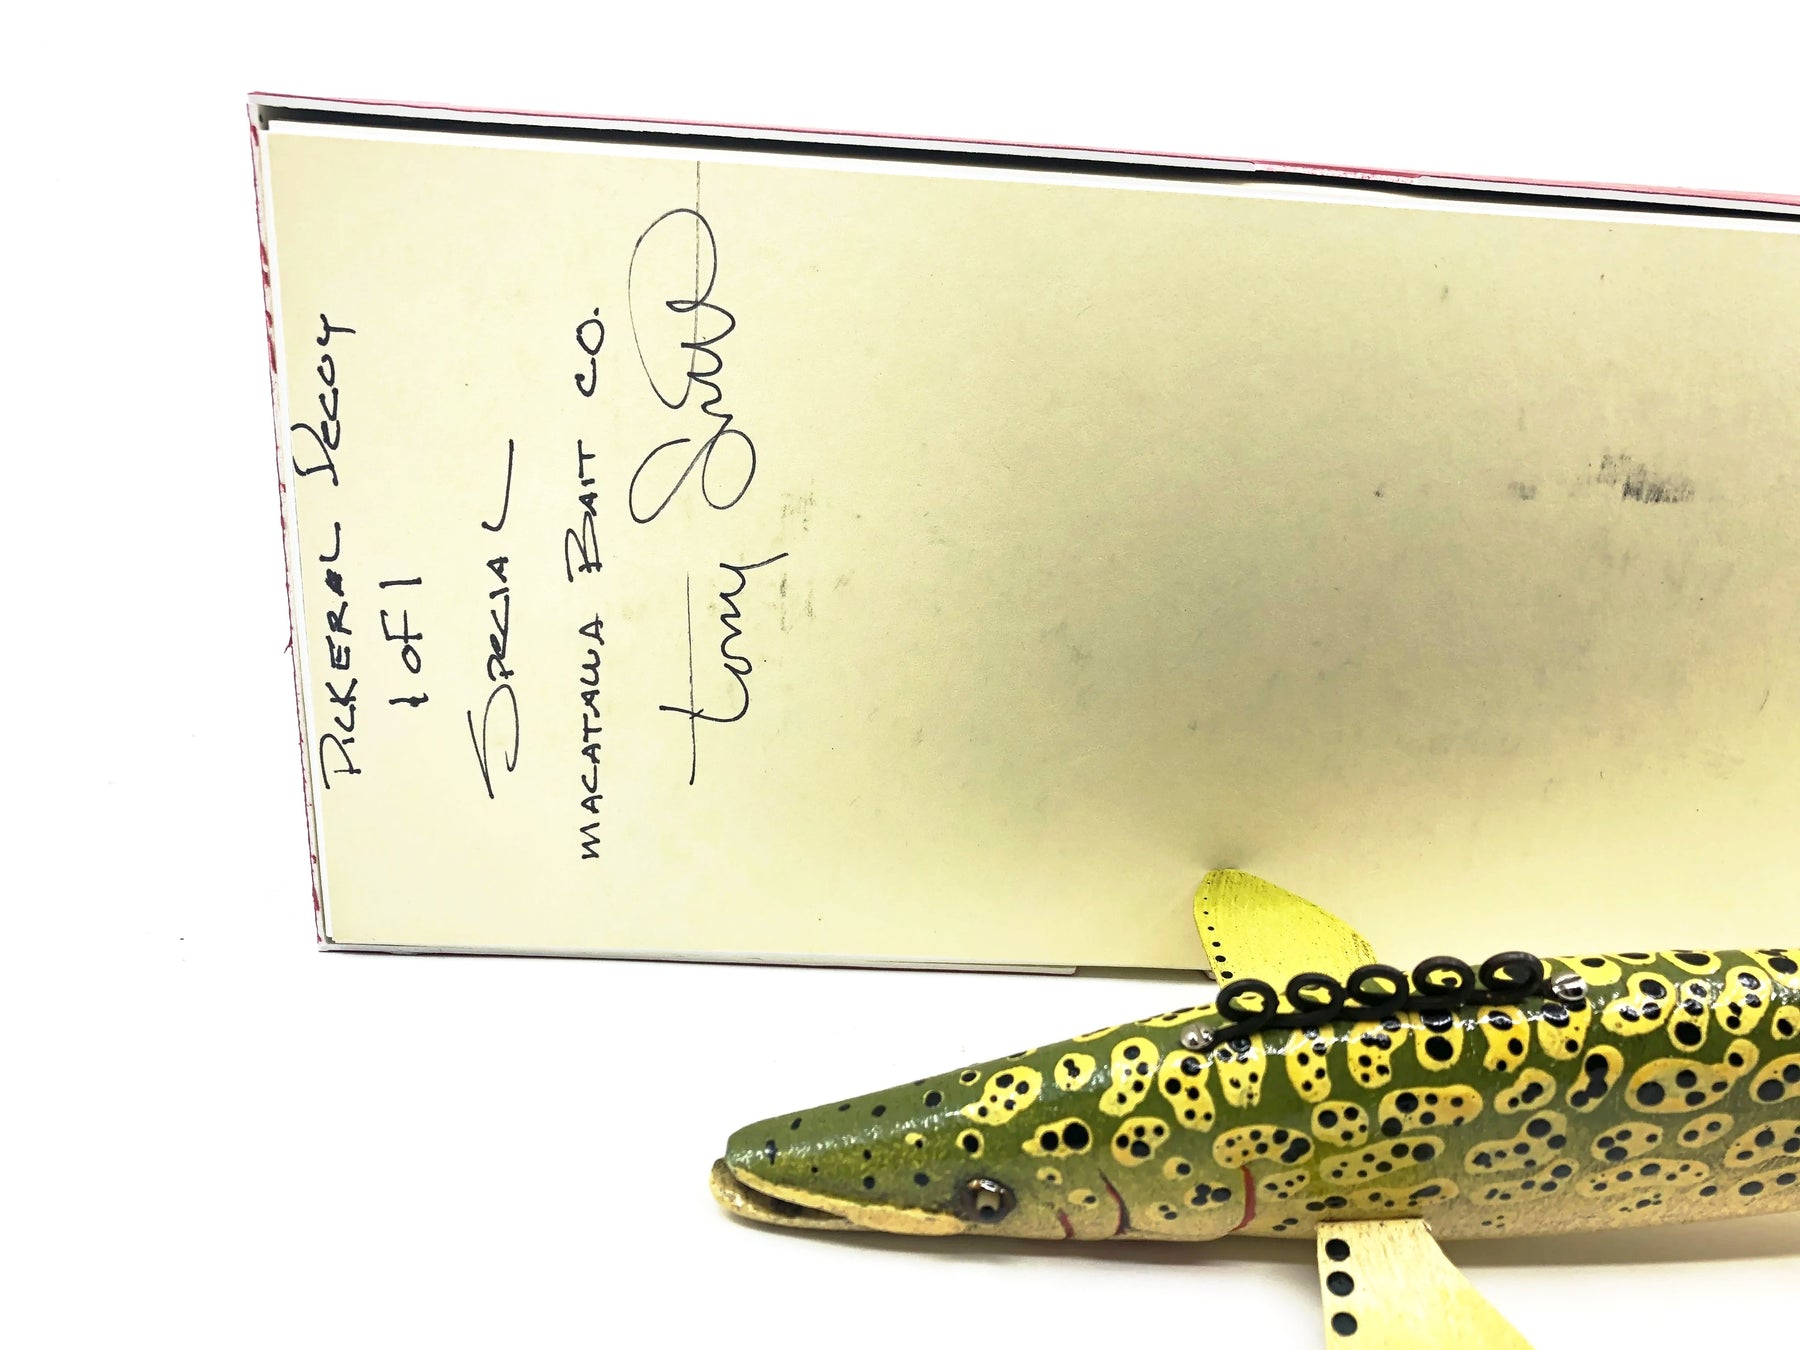 PICKERAL DECOY
1 OF 1
SPECIAL
MACATAWA BAIT CO.
Tony